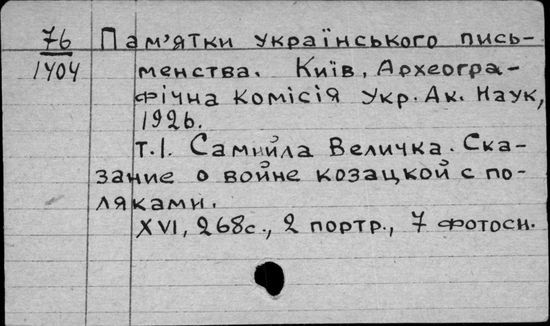 76
1404
Пам'ятки українського пись-
менства. Київ, Археогра-
фічна Комісія Укр. Ак. Наук,
1926.
т.I. Самийла Величка. Ска-
зание о войне козацкой с по-
ляками.
XVI, 268с., 2 портр., 7 фотосн.